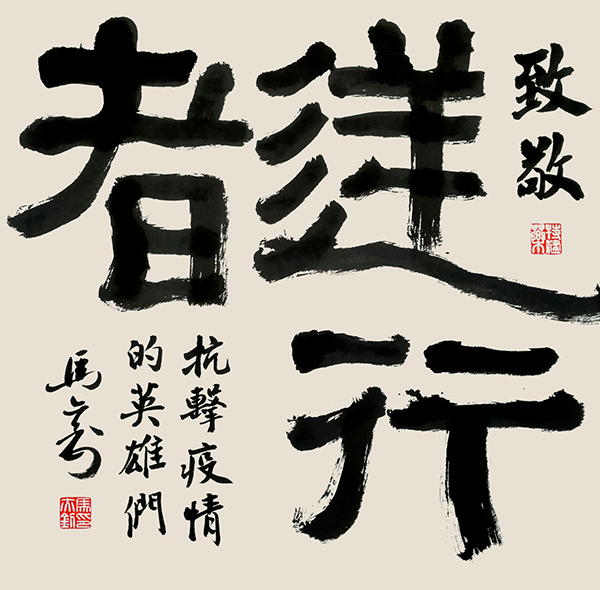 致敬
逆行
者
抗擊疫情
的英雄們
馬